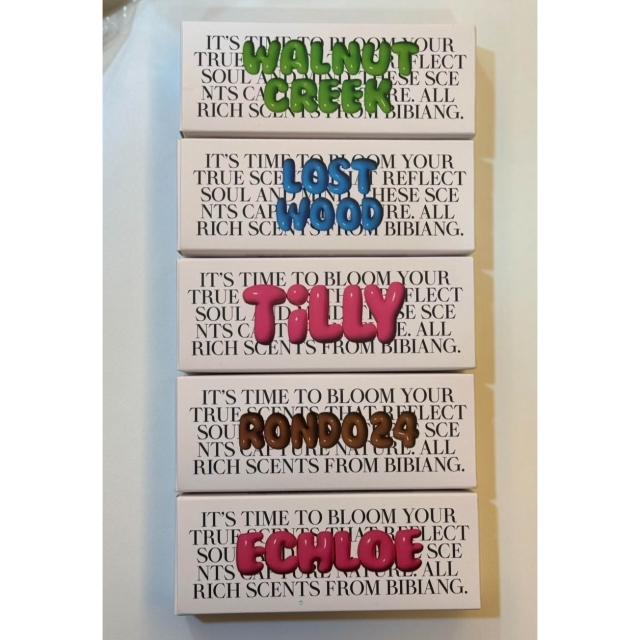 IT'S TIME TO BLOOM YOUR
TRUE FLECT
WALNUT
SOUL AND MIND THESE SCE
NTS CA RE. ALL
CREEK
RICH SCENTS FROM BIBIANG.
IT'S TIME TO BLOOM YOUR
TRUE SCE REFLECT
LOST
SOUL AND MIND THESE SCE
NTS CAP RE. ALL
WOOD
RICH SCENTS FROM BIBIANG.
IT'S TIME TO BLOOM YOUR
TRUE FLECT
TiLLY
SOUL SE SCE
NTS CA E. ALL
RICH SCENTS FROM BIBIANG.
IT'S TIME TO BLOOM YOUR
TRUE SCENTS THAT REFLECT
RONDO24
SOU SCE
NTS CAPTURE NATURE. ALL
RICH SCENTS FROM BIBIANG.
IT'S TIME TO BLOOM YOUR
TRUE SCENTS THAT REFLECT
ECHLOE
SOU SCE
NTS CAPTURE NATURE. ALL
RICH SCENTS FROM BIBIANG.